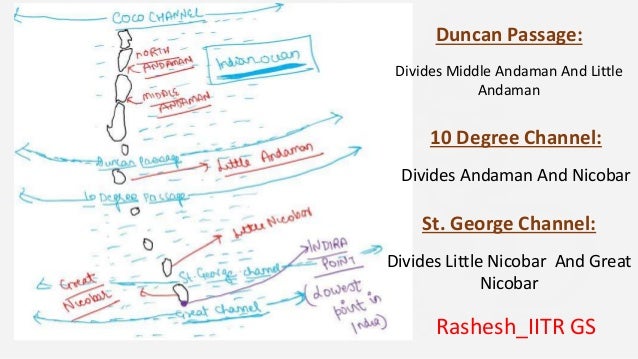 COCO CHANNEL
NORTH
ANDAMAN
Indian ocean
MIDDLE
ANDAMAN
Duncan Passage
Little Andaman
10 Degree Passage
Little Nicobar
INDIRA
POINT
(Lowest
point in
India)
St. George channel
Great
Nicobar
Great channel
Duncan Passage:
Divides Middle Andaman And Little
Andaman
10 Degree Channel:
Divides Andaman And Nicobar
St. George Channel:
Divides Little Nicobar And Great
Nicobar
Rashesh_IITR GS